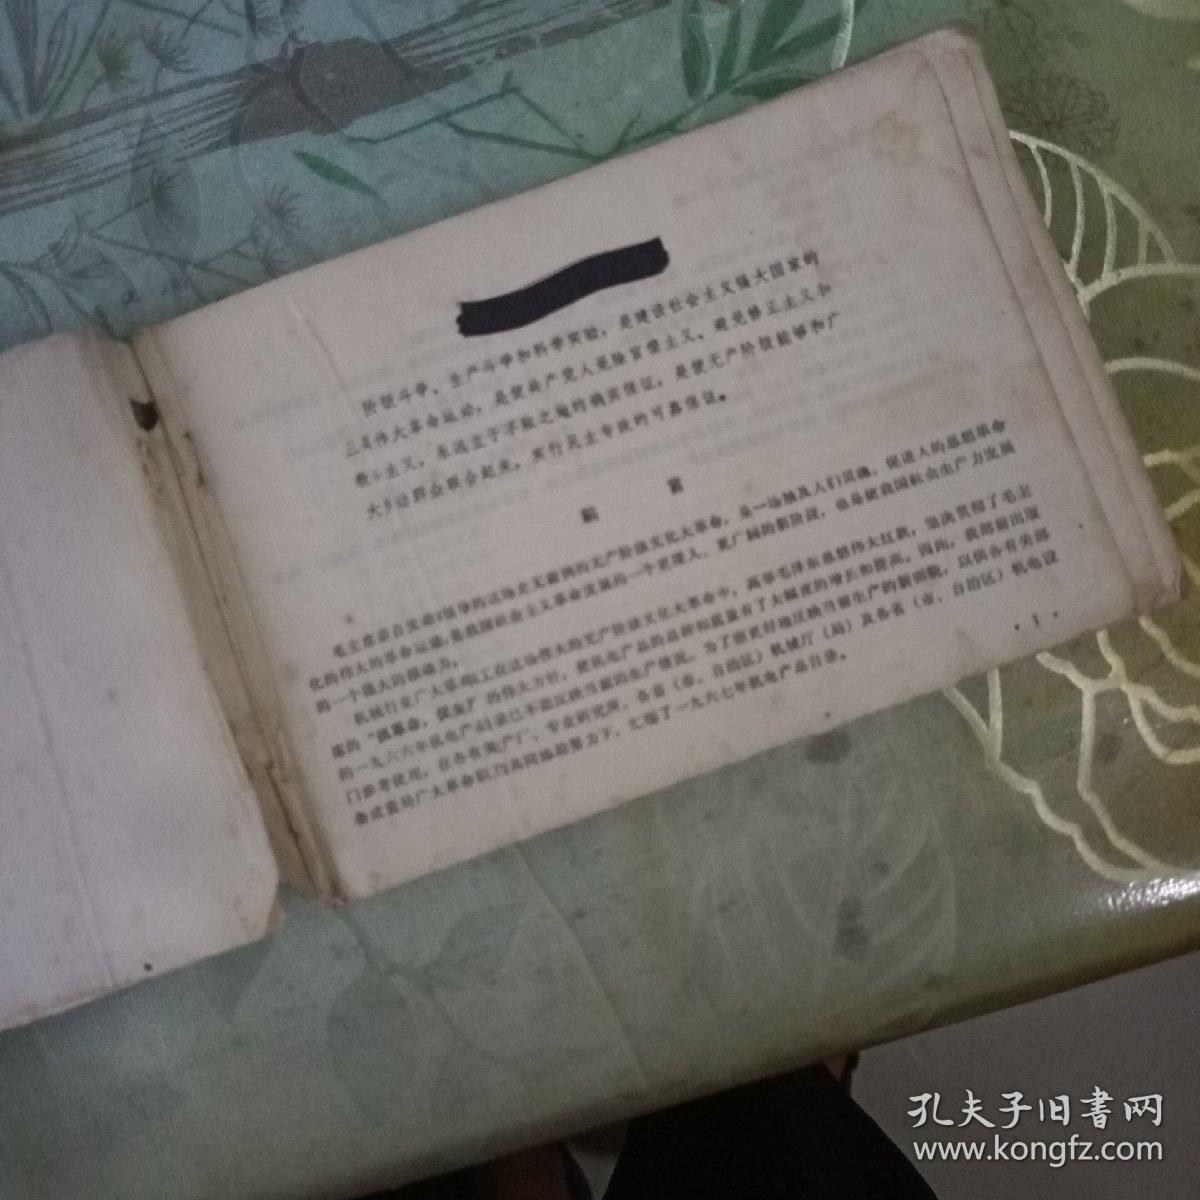 阶级斗争、生产斗争和科学实验，是建设社会主义强大国家的
三项伟大革命运动，是使共产党人免除官僚主义、避免修正主义和
教条主义，永远立于不败之地的确实保证，是使无产阶级能够和广
大劳动群众联合起来，实行民主专政的可靠保证。
前 言
毛主席亲自发动和领导的这场史无前例的无产阶级文化大革命，是一场触及人们灵魂、促进人的思想革命
化的伟大的革命运动；是我国社会主义革命发展的一个更深入、更广阔的新阶段，也是使我国社会生产力发展
的一个强大的推动力。
机械行业广大革命职工在这场伟大的无产阶级文化大革命中，高举毛泽东思想伟大红旗，坚决贯彻了毛主
席的“抓革命，促生产”的伟大方针，使机电产品的品种和质量有了大幅度的增长和提高。因此，我部前出版
的一九六六年机电产品目录已不能反映当前的生产情况。为了能更好地反映当前生产的新面貌，以供各有关部
门参考使用，在各有关产厂、专业研究所、各省（市、自治区）机械厅（局）及各省（市、自治区）机电设
备成套局广大革命职工的共同协助努力下，汇编了一九六七年机电产品目录。
· 1 ·
孔夫子旧书网
www.kongfz.com